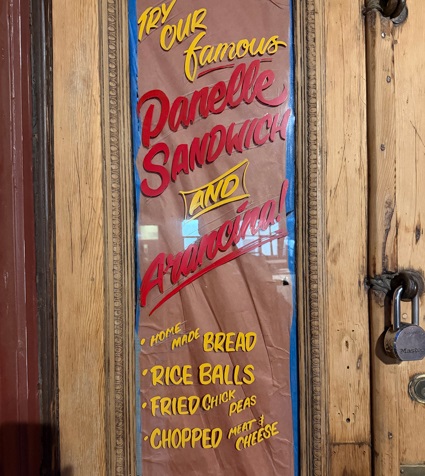 TRY
OUR
famous
Panelle
SANDWICH
AND
Arancina!
• HOME MADE BREAD
• RICE BALLS
• FRIED CHICK PEAS
• CHOPPED MEAT & CHEESE
Master